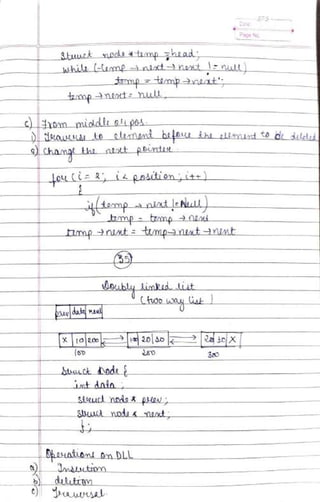 Date
Page No.
struct node * temp = head;
while (temp → next → next != null)
temp = temp → next;
temp → next = null.
c) From middle or pos.
1) Traverse to element before the element to be deleted
2) Change the next pointer
for (i = 2; i < position; i++)
{
if (temp → next != Null)
temp = temp → next
temp → next = temp → next → next
35
Doubly linked list
(two way list)
prev data next
X 10 200 100 20 30 X
100 200 300
Struct Node {
int data;
struct node * prev;
struct node * next;
};
Operations on DLL
a) Insertion
b) deletion
c) Traversal